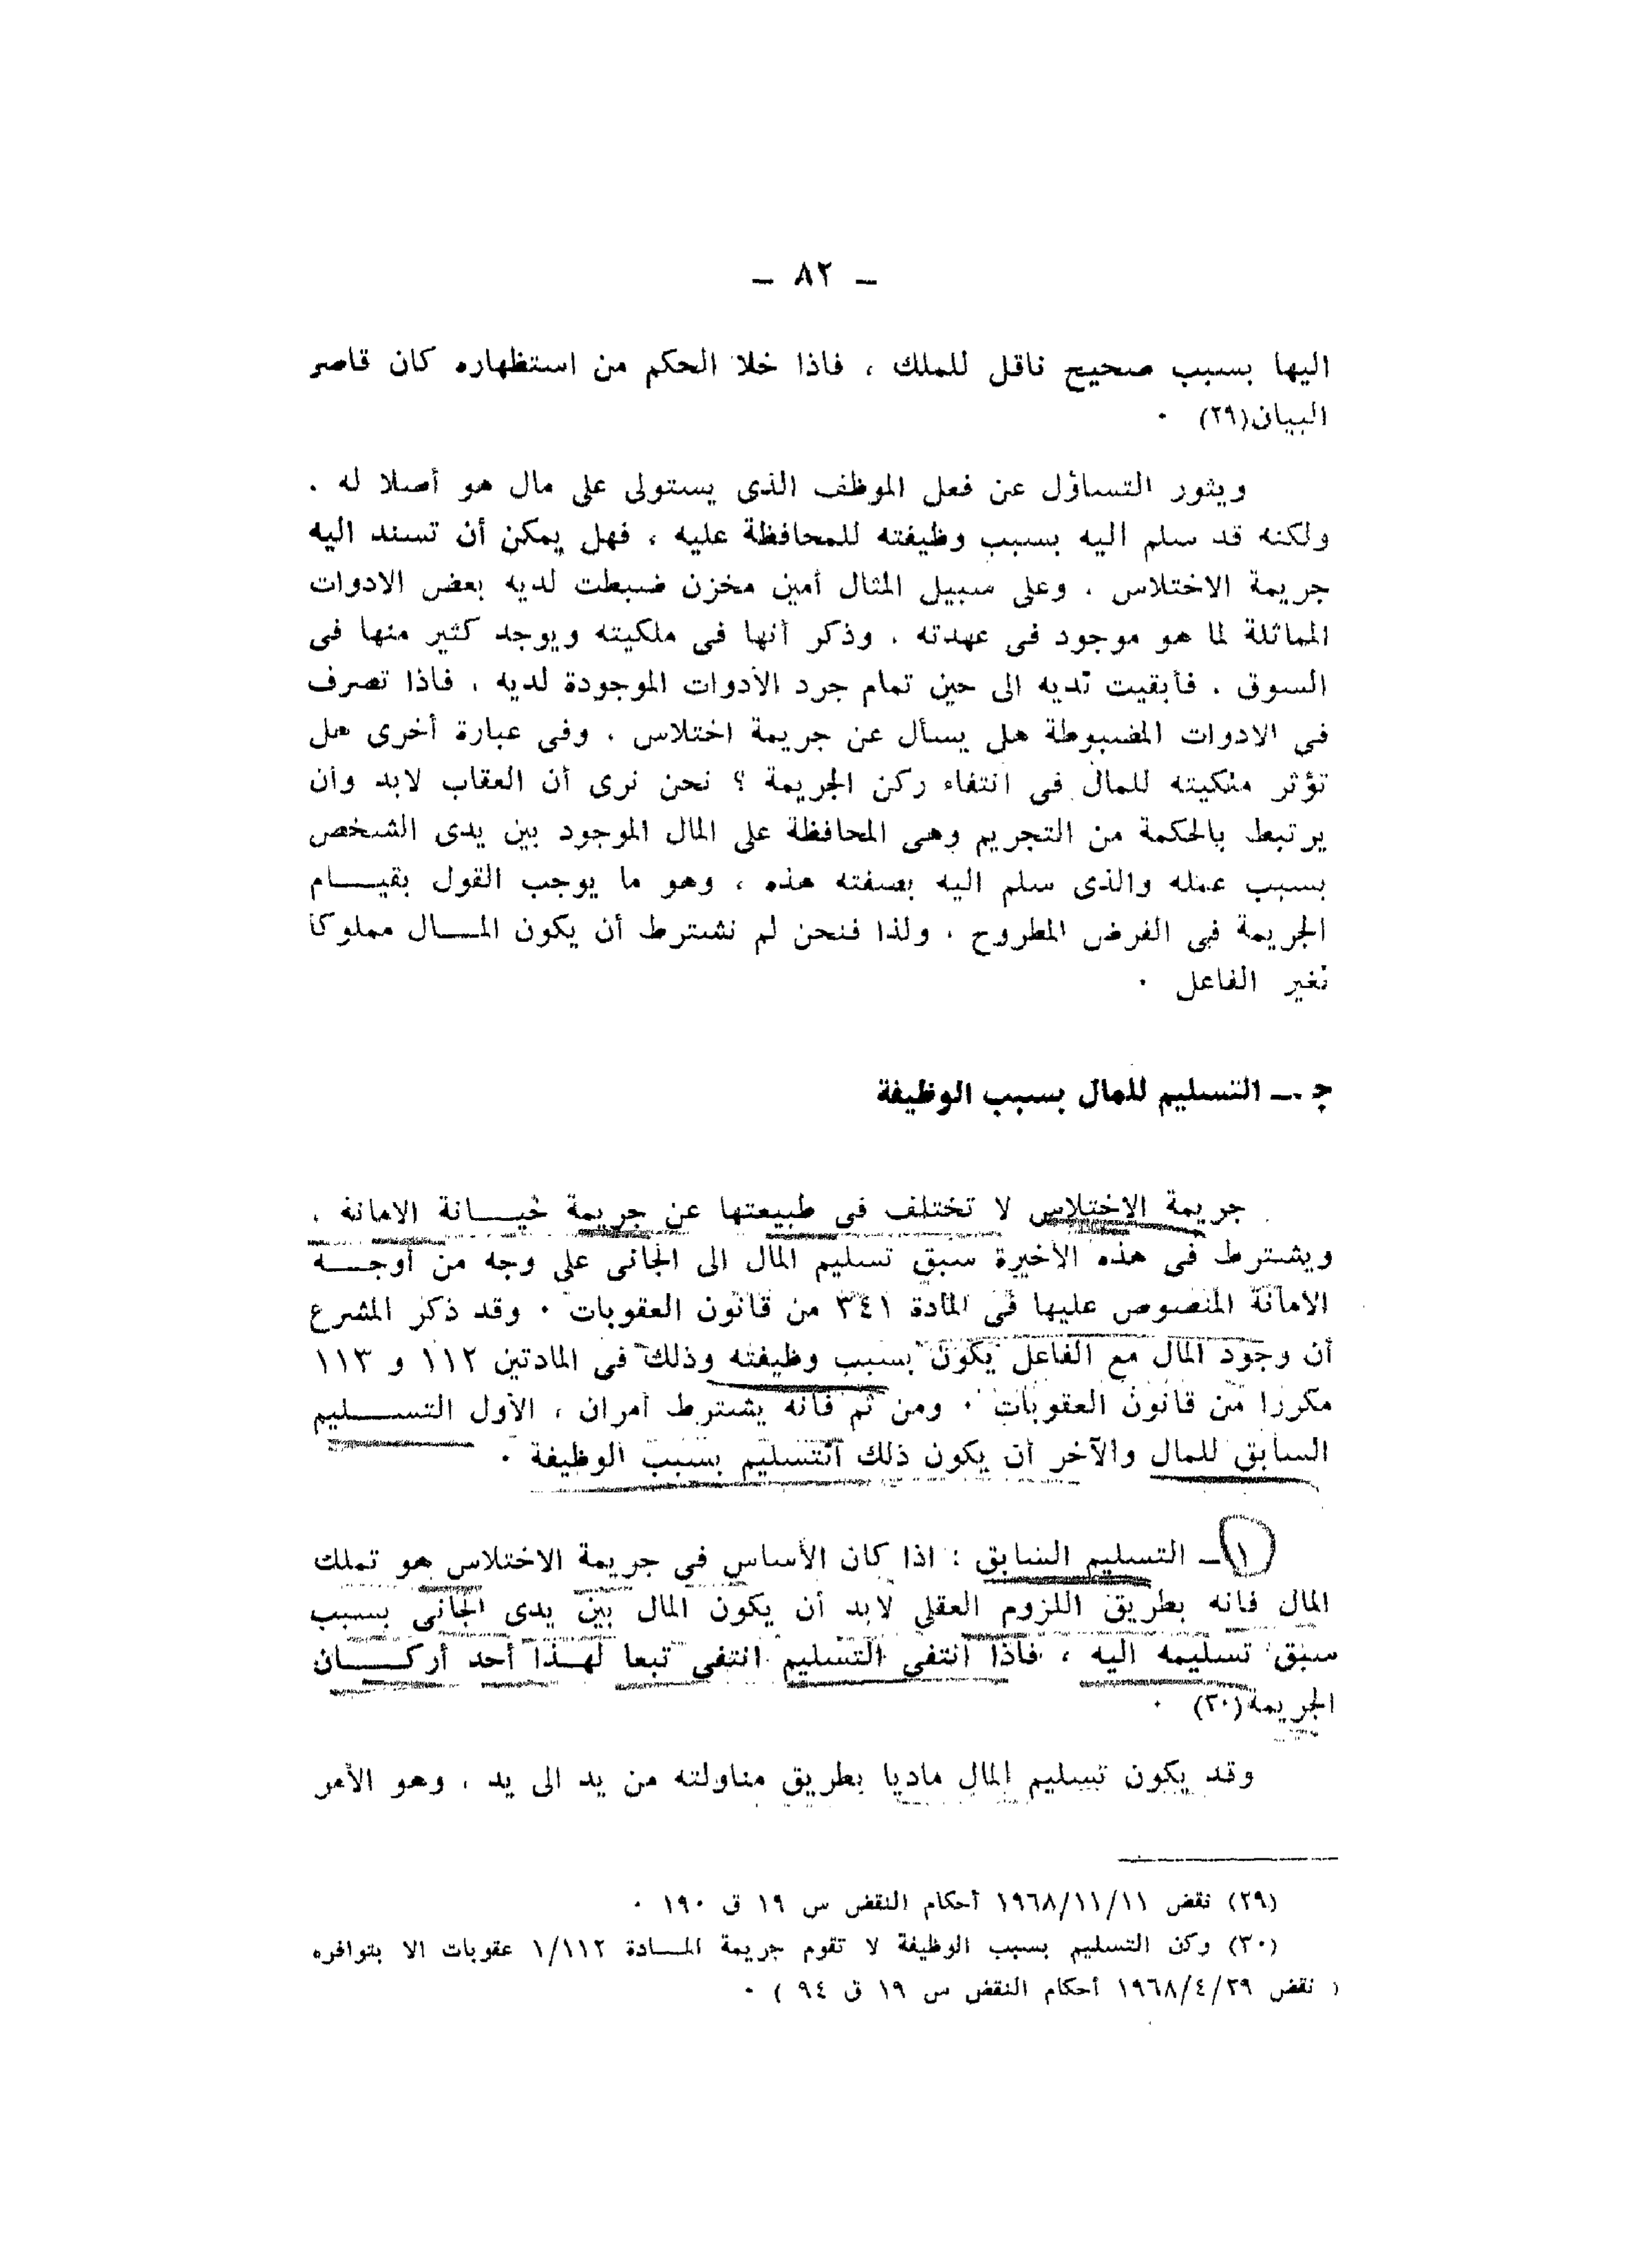 — ٨٢ —
اليها بسبب صحيح ناقل للملك ، فاذا خلا الحكم من استظهاره كان قاصر
البيان(٢٩) ٠
ويثور التساؤل عن فعل الموظف الذى يستولى على مال هو أصلا له ،
ولكنه قد سلم اليه بسبب وظيفته للمحافظة عليه ، فهل يمكن أن تسند اليه
جريمة الاختلاس ، وعلى سبيل المثال أمين مخزن ضبطت لديه بعض الادوات
المماثلة لما هو موجود فى عهدته ، وذكر أنها فى ملكيته ويوجد كثير منها فى
السوق ، فأبقيت لديه الى حين تمام جرد الأدوات الموجودة لديه ، فاذا تصرف
فى الادوات المضبوطة هل يسأل عن جريمة اختلاس ، وفى عبارة أخرى هل
تؤثر ملكيته للمال فى انتفاء ركن الجريمة ؟ نحن نرى أن العقاب لابد وأن
يرتبط بالحكمة من التجريم وهى المحافظة على المال الموجود بين يدى الشخص
بسبب عمله والذى سلم اليه بصفته هذه ، وهو ما يوجب القول بقيـــام
الجريمة فى الفرض المطروح ، ولذا فنحن لم نشترط أن يكون المـــال مملوكا
لغير الفاعل ٠
ج ـ التسليم للمال بسبب الوظيفة
جريمة الاختلاس لا تختلف فى طبيعتها عن جريمة خيـــانة الامانة ،
ويشترط فى هذه الأخيرة سبق تسليم المال الى الجانى على وجه من أوجـــه
الأمانة المنصوص عليها فى المادة ٣٤١ من قانون العقوبات ٠ وقد ذكر المشرع
أن وجود المال مع الفاعل يكون بسبب وظيفته وذلك فى المادتين ١١٢ و ١١٣
مكررا من قانون العقوبات ٠ ومن ثم فانه يشترط أمران ، الأول التســـليم
السابق للمال والآخر أن يكون ذلك التسليم بسبب الوظيفة ٠
١ـ التسليم السابق : اذا كان الأساس فى جريمة الاختلاس هو تملك
المال فانه بطريق اللزوم العقلى لابد أن يكون المال بين يدى الجانى بسبب
سبق تسليمه اليه ، فاذا انتفى التسليم انتفى تبعا لهـــذا أحد أركـــان
الجريمة(٣٠) ٠
وقد يكون تسليم المال ماديا بطريق مناولته من يد الى يد ، وهو الأمر
(٢٩) نقض ١٩٦٨/١١/١١ أحكام النقض س ١٩ ق ١٩٠ ٠
(٣٠) وكن التسليم بسبب الوظيفة لا تقوم جريمة المـــادة ١/١١٢ عقوبات الا بتوافره
( نقض ١٩٦٨/٤/٢٩ أحكام النقض س ١٩ ق ٩٤ ) ٠